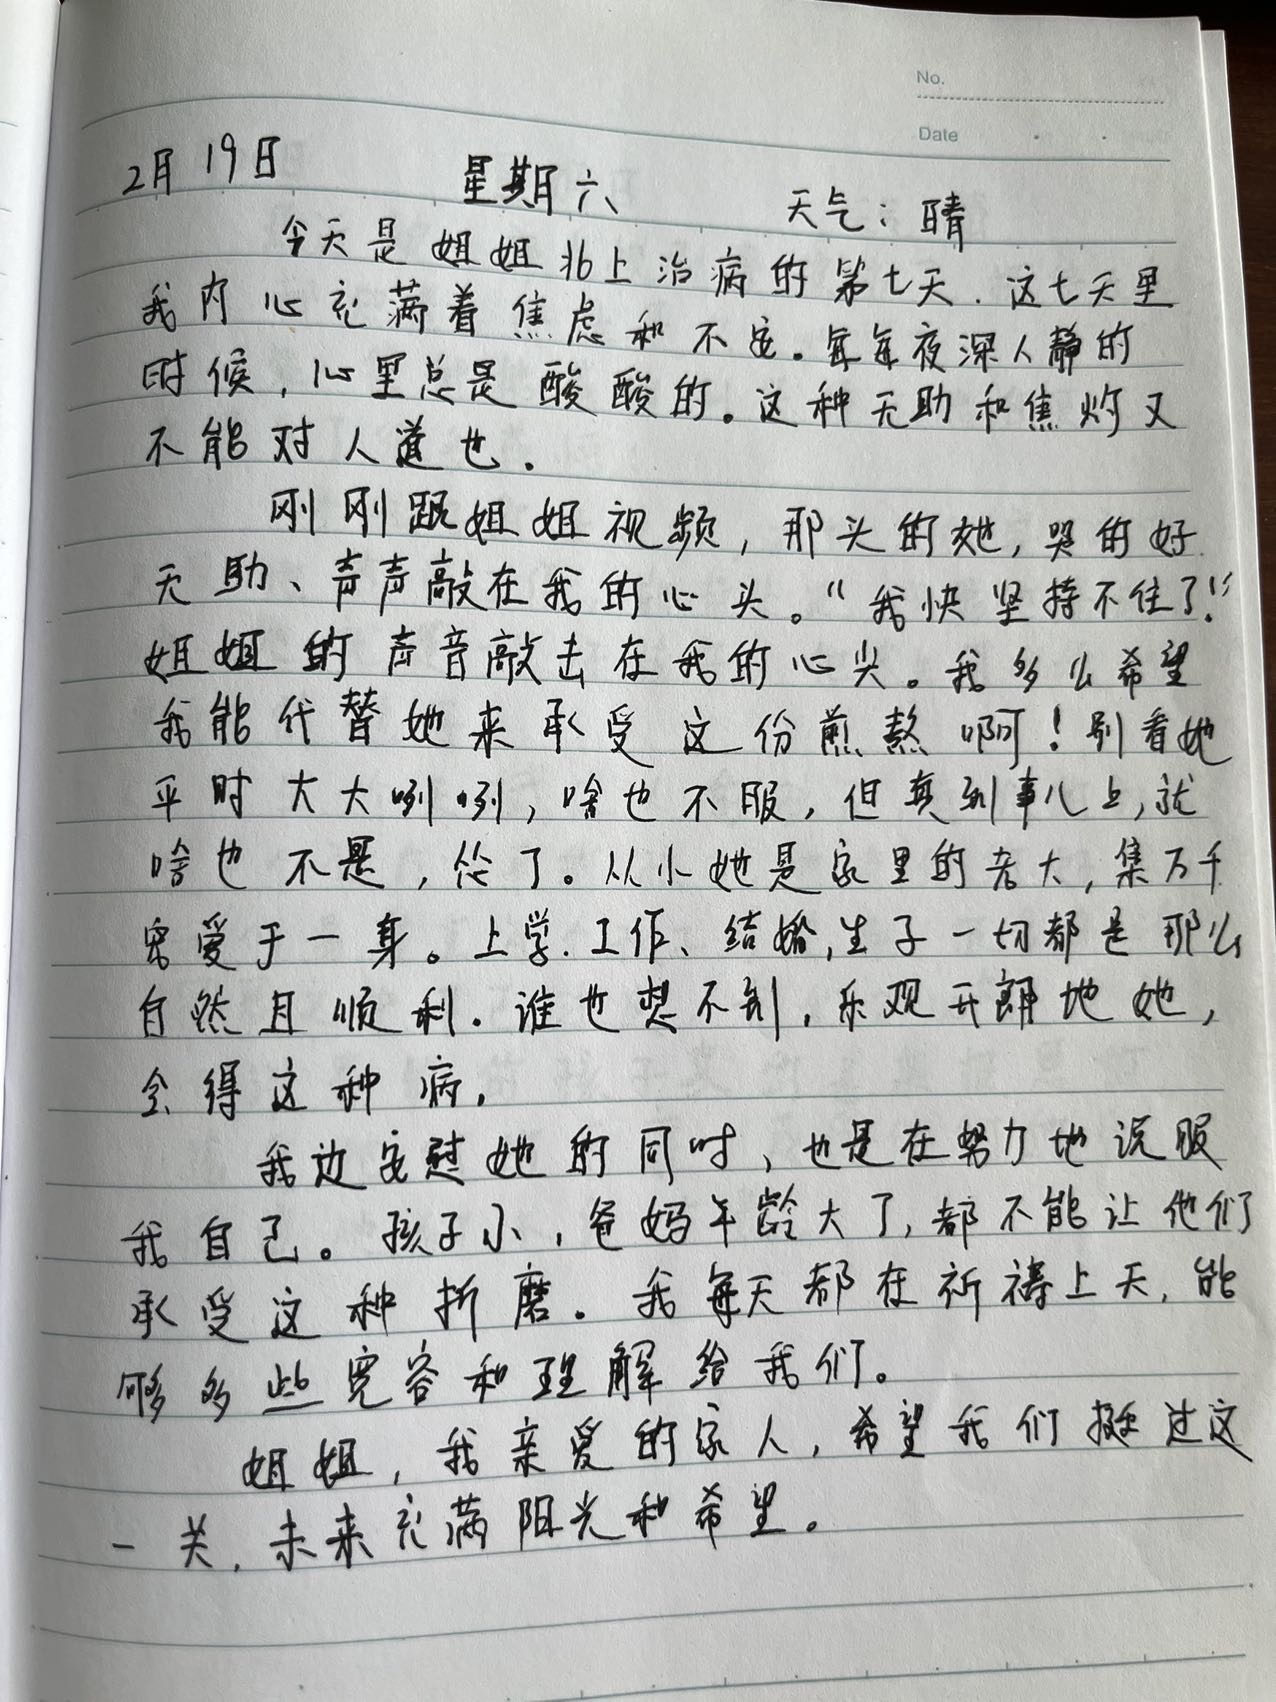 No.
Date
2月19日 星期六 天气：晴
今天是姐姐北上治病的第七天.这七天里
我内心充满着焦虑和不安。每每夜深人静的
时候，心里总是酸酸的。这种无助和焦灼又
不能对人道也.
刚刚跟姐姐视频，那头的她，哭的好
无助、声声敲在我的心头。“我快坚持不住了！”
姐姐的声音敲击在我的心尖。我多么希望
我能代替她来承受这份煎熬啊！别看她
平时大大咧咧，啥也不服，但真到事儿上，就
啥也不是，怂了。从小她是家里的老大，集万千
宠爱于一身。上学.工作、结婚,生子一切都是那么
自然且顺利.谁也想不到，乐观开朗地她，
会得这种病.
我边安慰她的同时，也是在努力地说服
我自己。孩子小，爸妈年龄大了，都不能让他们
承受这种折磨。我每天都在祈祷上天，能
够多些宽容和理解给我们。
姐姐，我亲爱的家人，希望我们挺过这
一关，未来充满阳光和希望。